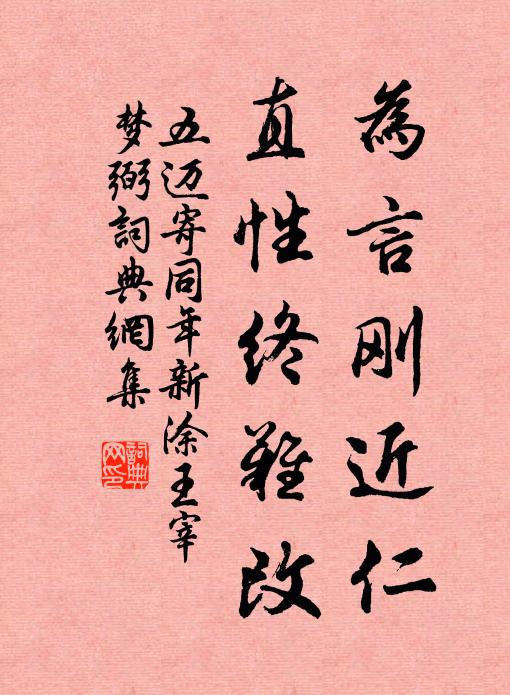 為言刚近仁
直性终難改
五迈寄同年新涂王宰
梦弼詞典網集
詞典网印